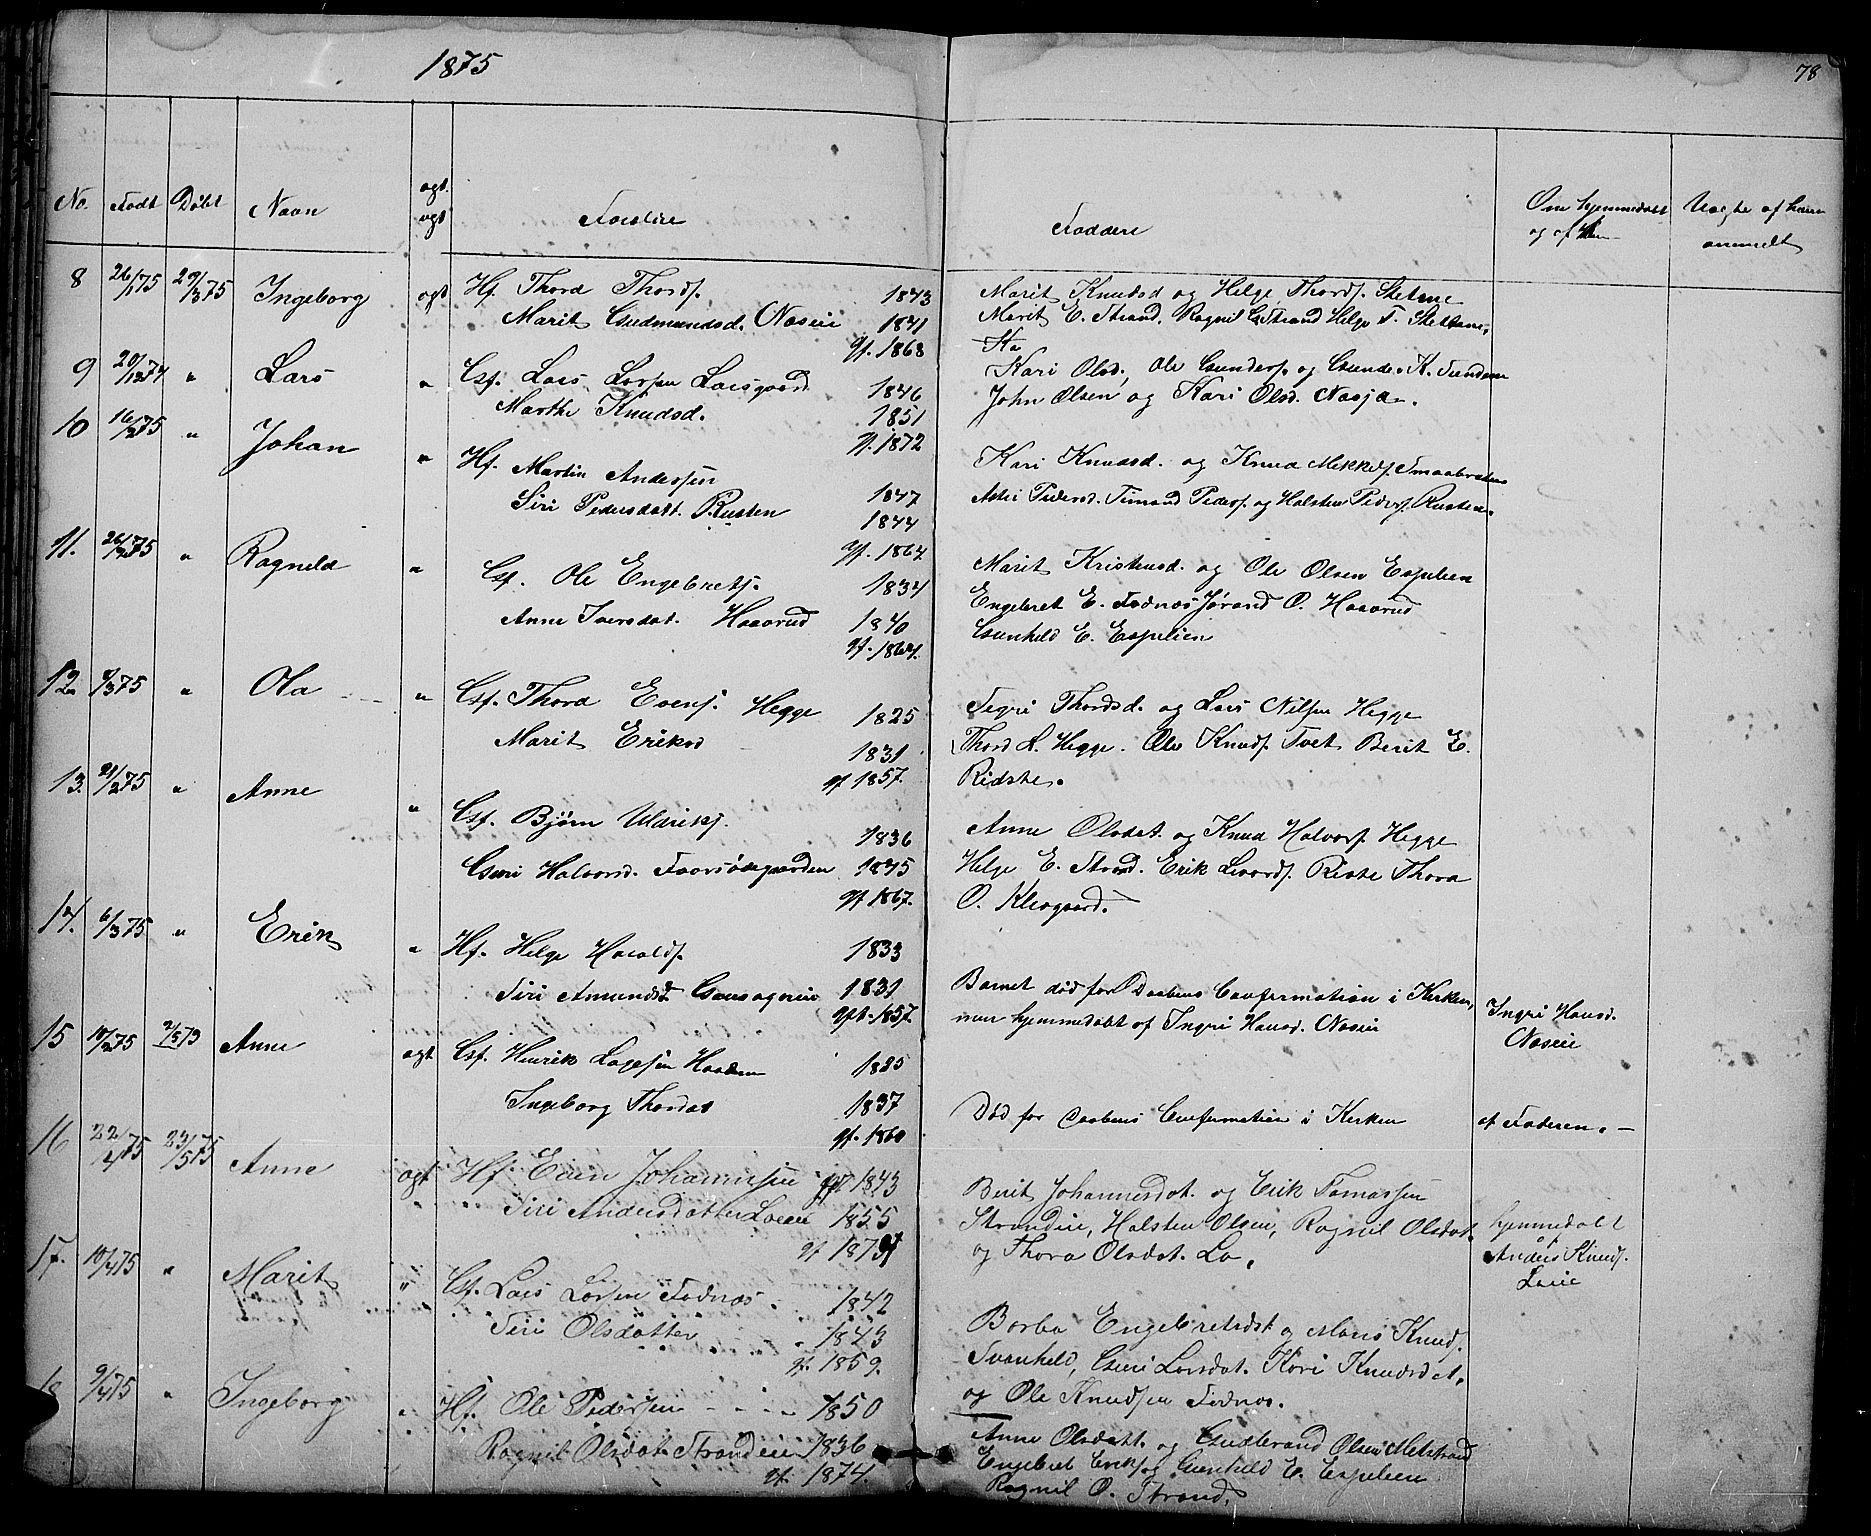 1875
78
No. Født Døbt Navn ægt. uægt Forældre Faddere Om hjemmedøbt og af hvem Uægte af hvem anmeldt
8 26/1 75 29/3 75 Ingeborg ægt Hf. Thord Thords. 1843 Marit Knudsd og Helge Thords.
Marit Gudmundsd. Næseie 1841 Marit E. Strand, Ragnil Strand Helge T.
gf. 1868
9 20/12 74 " Lars " Gf. Lars Larsen Larsgaard 1846 Kari Olsd., Ole Gunders. og Gunder K.
Marthe Knudsd. 1851 John Olsen og Kari Olsd. Næsja.
gf. 1872
10 16/2 75 " Johan " Hf. Martin Andersen 1847 Kari Knudsd. og Knud Mikkels. Smaabraaten
Siri Pedersdatt. Rusten 1844 Pedersd. Simand Peders. og Halsten Peders. Rusten.
gf. 1864
11. 24/2 75 " Ragnild " Gf. Ole Engebrets. 1834 Marit Kristensd. og Ole Olsen Espelien
Anne Iversdat. Haavrud 1840 Engebret E. Fodnæs Jørand O. Haavrud
gf. 1864. Gunhild E. Espelien
12 8/3 75 " Ola " Gf. Thord Evens. Hegge 1825 Sigri Thordsd. og Lars Nilsen Hegge
Marit Eriksd 1831 Thord L. Hegge. Ole Knuds. Tvet Berit E.
gf 1857. Ridste.
13. 21/2 75 " Anne " Gf. Bjørn Ulriks. 1836 Anne Olsdat. og Knud Halvors. Hegge
Guri Halvorsd. 1845 Helge E. Strand. Erik Livords. Riste Thora
gf 1867. O. Klevgaard.
14. 6/3 75 " Erik " Hf. Helge Haralds. 1833
Siri Amundsd. 1831 Barnet død før Daabens Confirmation i Kirken,
gft. 1857. var hjemmedøbt af Ingri Hansd. Næseie Ingri Hansd. Næseie
15 10/2 75 2/5 73 Anne ægt Gf. Henrik Lagesen 1825
Ingeborg Thordsd 1837 Død før Daabens Confirmation i Kirken af Faderen. —
gf. 1860
16 22/4 75 23/5 75 Anne ægt Hf. Even Johannesen 1843 Berit Johannesdat. og Erik Tomassen
Siri Andersdatter 1855 Strandeie, Halsten Olsen, Ragnil Olsdat. hjemmedøbt
gf 1873 og Thora Olsdat. Lo. af Anders Knuds.
17. 10/4 75 " Marit " Gf. Lars Larsen Fodnæs 1842
Siri Olsdatter 1843 Barbo Engebretsdat og Knud.
gf. 1859. Svanhild, Guri Larsdat. Kari Knudsdat,
18 9/4 75 " Ingeborg " Hf. Ole Pedersen 1850 og Ole Knudsen Fodnæs.
Ragnil Olsdat. Strandeie 1836 Anne Olsdatt. og Gudbrand Olsen
gf. 1874. Engebret Eriks. og Gunhild E. Espelien
Ragnil O. Strand.